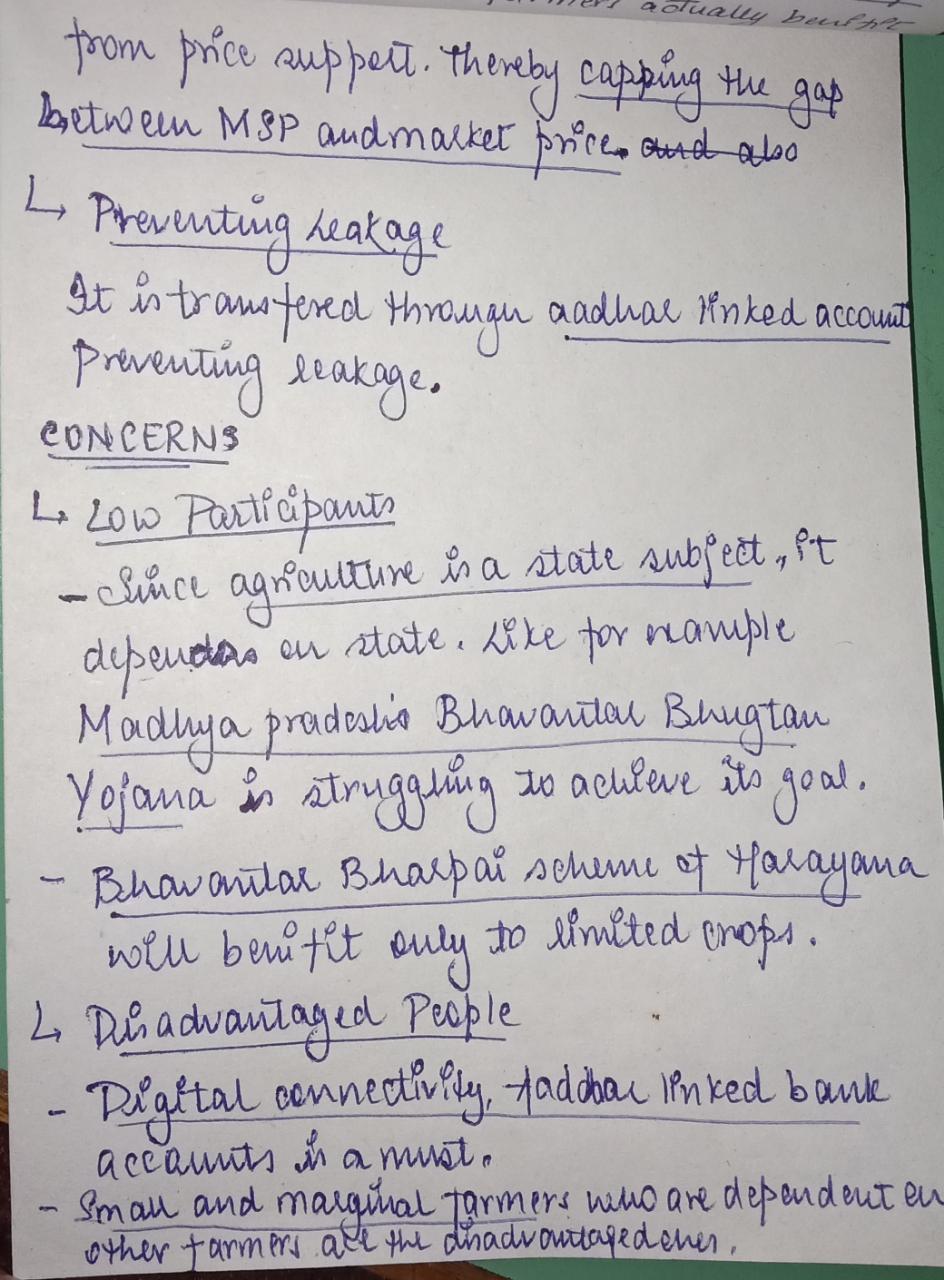 actually benefit
from price support. Thereby capping the gap
between MSP and market price. and also
↳ Preventing Leakage
It is transfered through aadhar linked account
Preventing leakage.
CONCERNS
↳ Low Participants
- Since agriculture is a state subject, it
depends on state. Like for example
Madhya pradesh's Bhavantar Bhugtan
Yojana is struggling to achieve its goal.
- Bhavantar Bharpai scheme of Harayana
will benifit only to limited crops.
↳ Disadvantaged People
- Digital connectivity, Aadhar linked bank
accounts is a must.
- Small and marginal farmers who are dependent on
other farmers are the disadvantaged ones.